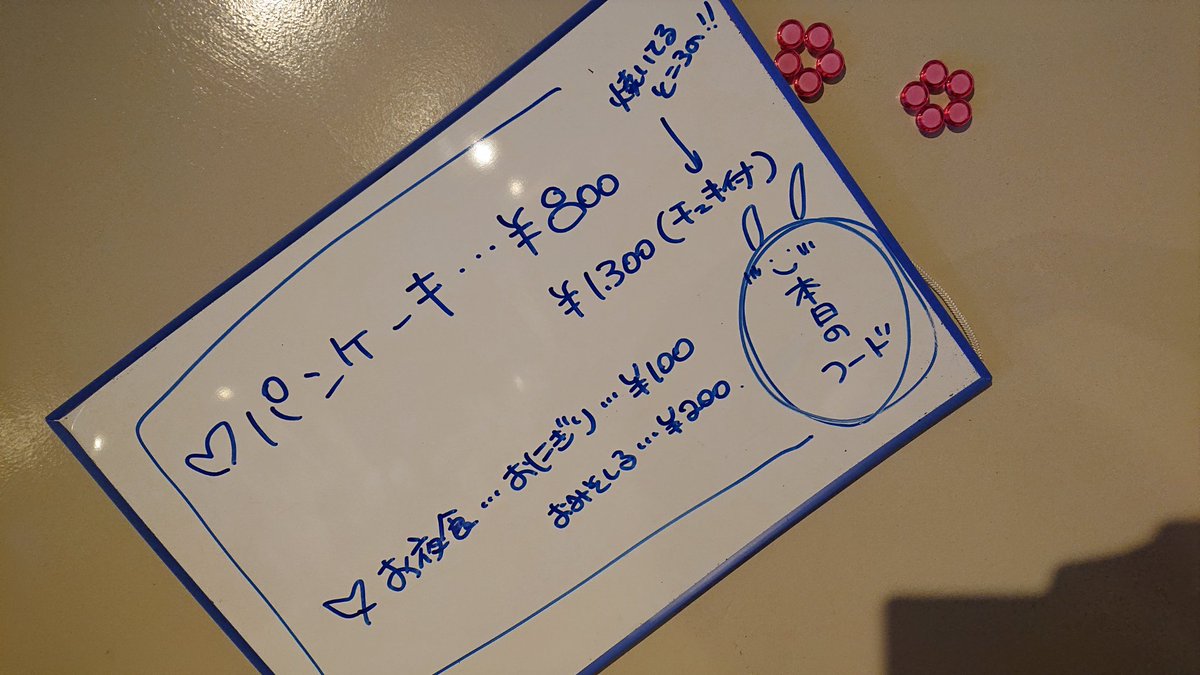 本日の
フード
♡パンケーキ…¥800
焼いてる
ところの!!
¥1.300(チェキ付)
♡お夜食…おにぎり…¥100
おみそしる…¥200